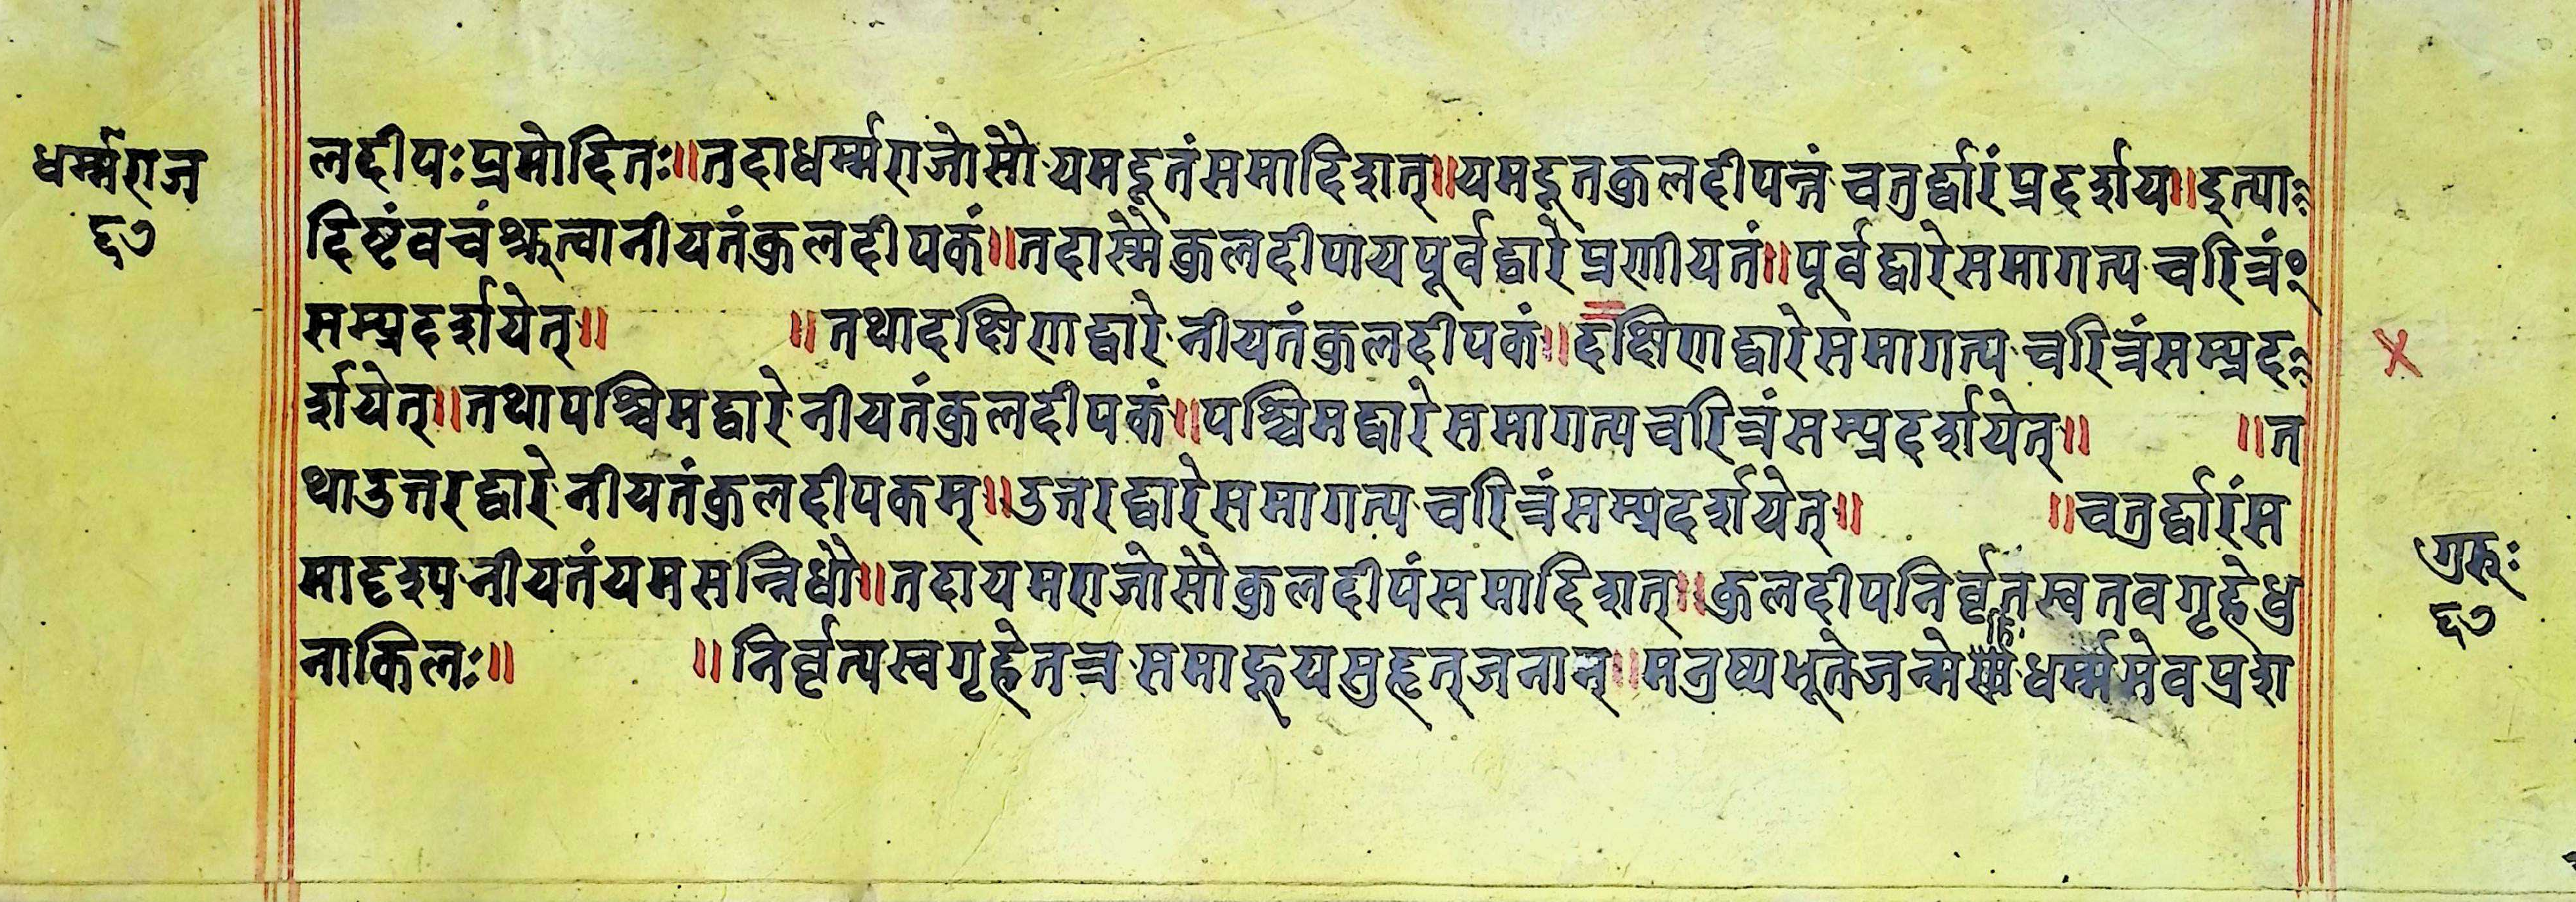 धर्म्मराज
६७
लद्दीपःप्रमोदितः॥तदाधर्म्मराजोसौयमद्दूतंसमादिशत्॥यमद्दूतकुलदीपन्त्वंचतुर्द्द्वारंप्रदर्शय॥इत्या
दिष्टंवचंश्रुत्वानीयतंकुलदीपकं॥तदास्मैकुलदीपायपूर्वद्वारेप्रणीयतं॥पूर्वद्वारेसमागत्यचरित्रं
सम्प्रदर्शयेत्॥ ॥तथादक्षिणद्वारेनीयतंकुलदीपकं॥दक्षिणद्वारेसमागत्यचरित्रंसम्प्रद
र्शयेत्॥तथापश्चिमद्वारेनीयतंकुलदीपकं॥पश्चिमद्वारेसमागत्यचरित्रंसम्प्रदर्शयेत्॥ ॥त
थाउत्तरद्वारेनीयतंकुलदीपकम्॥उत्तरद्वारेसमागत्यचरित्रंसम्प्रदर्शयेत्॥ ॥चतुर्द्द्वारंस
मादृश्यनीयतंयमसन्निधौ॥तदायमराजोसौकुलदीपंसमादिशत्॥कुलदीपनिर्वृतस्वतवगृहेधु
नाकिलः॥ ॥निर्वृत्यस्वगृहेतत्रसमाहूयसुहृत्जनान्॥मनुष्यभूतेजन्मेहिधर्म्ममेवप्रशा
गुरूः
६७